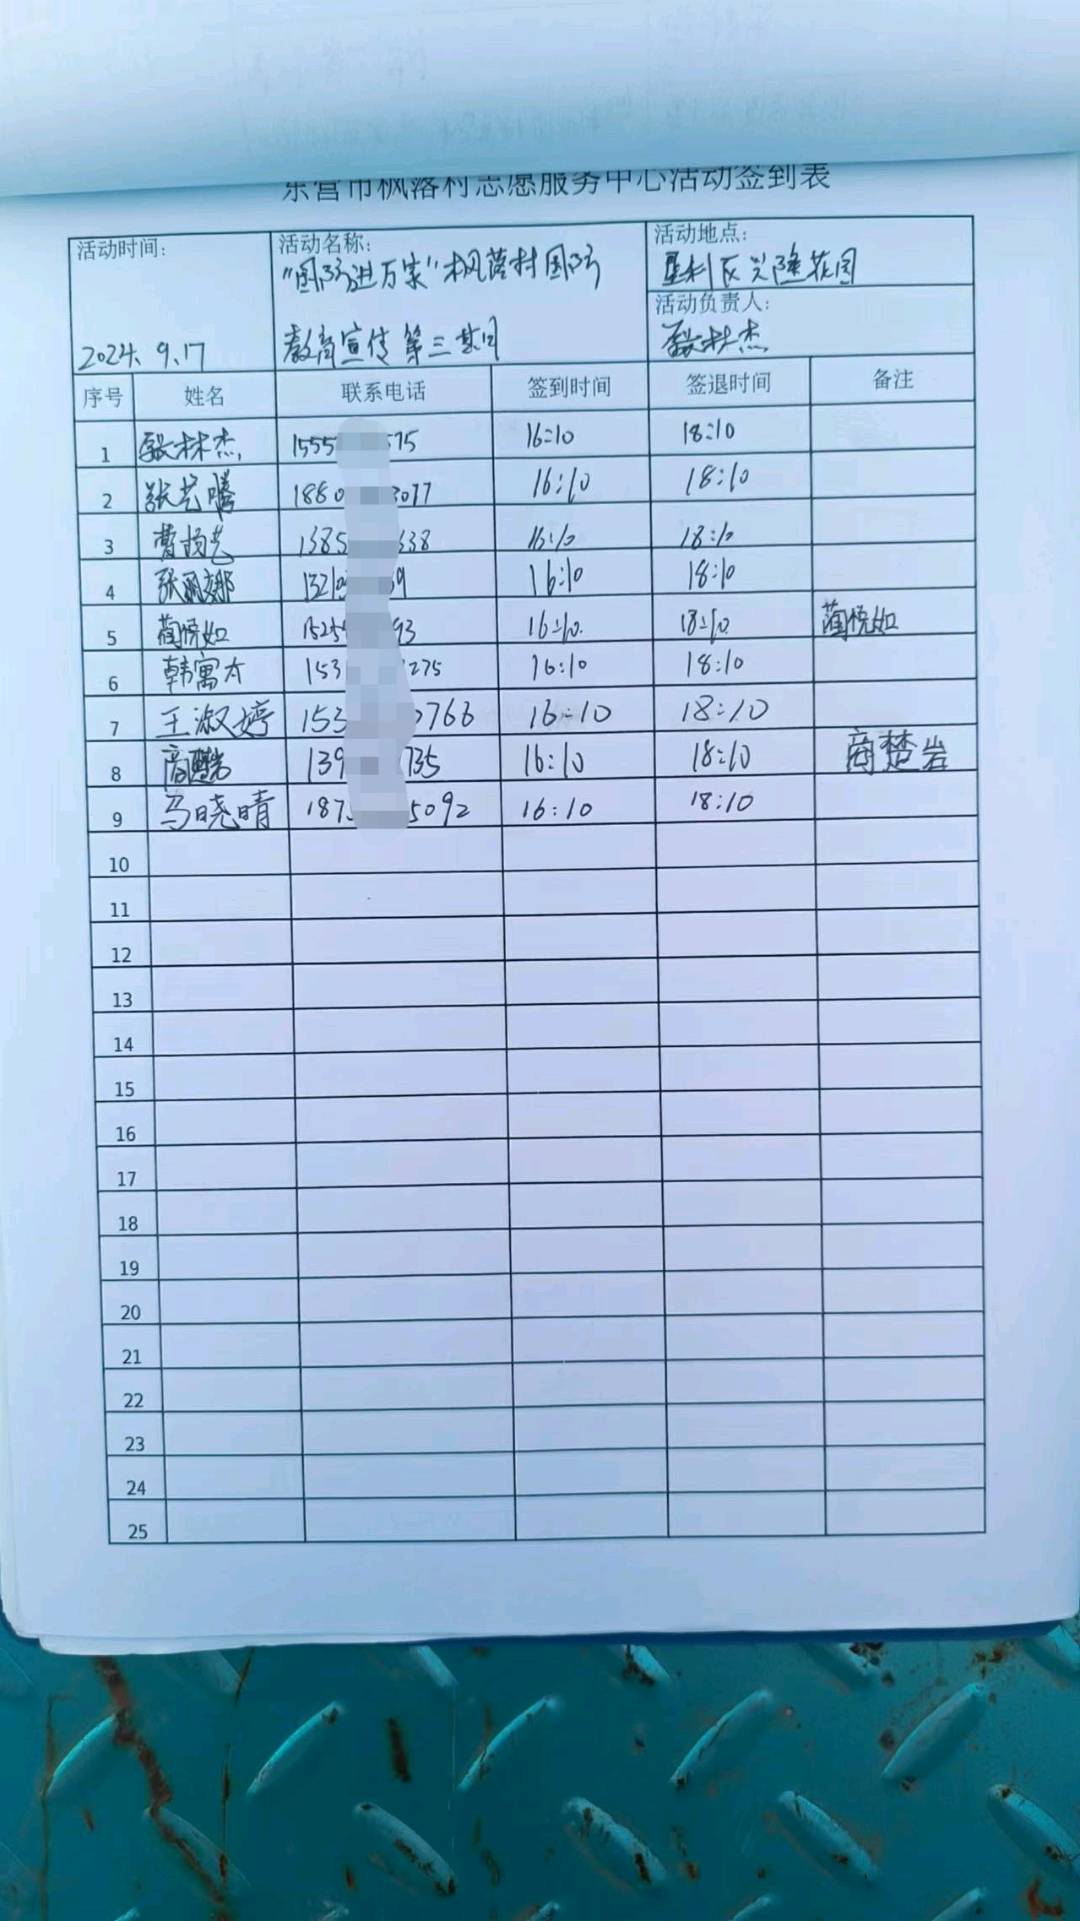 东营市枫落村志愿服务中心活动签到表
活动时间:
2024.9.17
活动名称:
"国防进万家"枫落村国防
教育宣传第三期
活动地点:
垦利区兴隆花园
活动负责人:
林杰
序号 姓名 联系电话 签到时间 签退时间 备注
1 林杰 1555 575 16:10 18:10
2 张艺腾 1880 3077 16:10 18:10
3 曹 艺 1385 338 16:10 18:10
4 张丽娜 1321 39 16:10 18:10
5 蔺悦如 1525 93 16:10 18:10 蔺悦如
6 韩寓 153 275 16:10 18:10
7 王淑婷 153 3766 16:10 18:10
8 商楚岩 139 735 16:10 18:10 商楚岩
9 马晓晴 187 5092 16:10 18:10
10
11
12
13
14
15
16
17
18
19
20
21
22
23
24
25